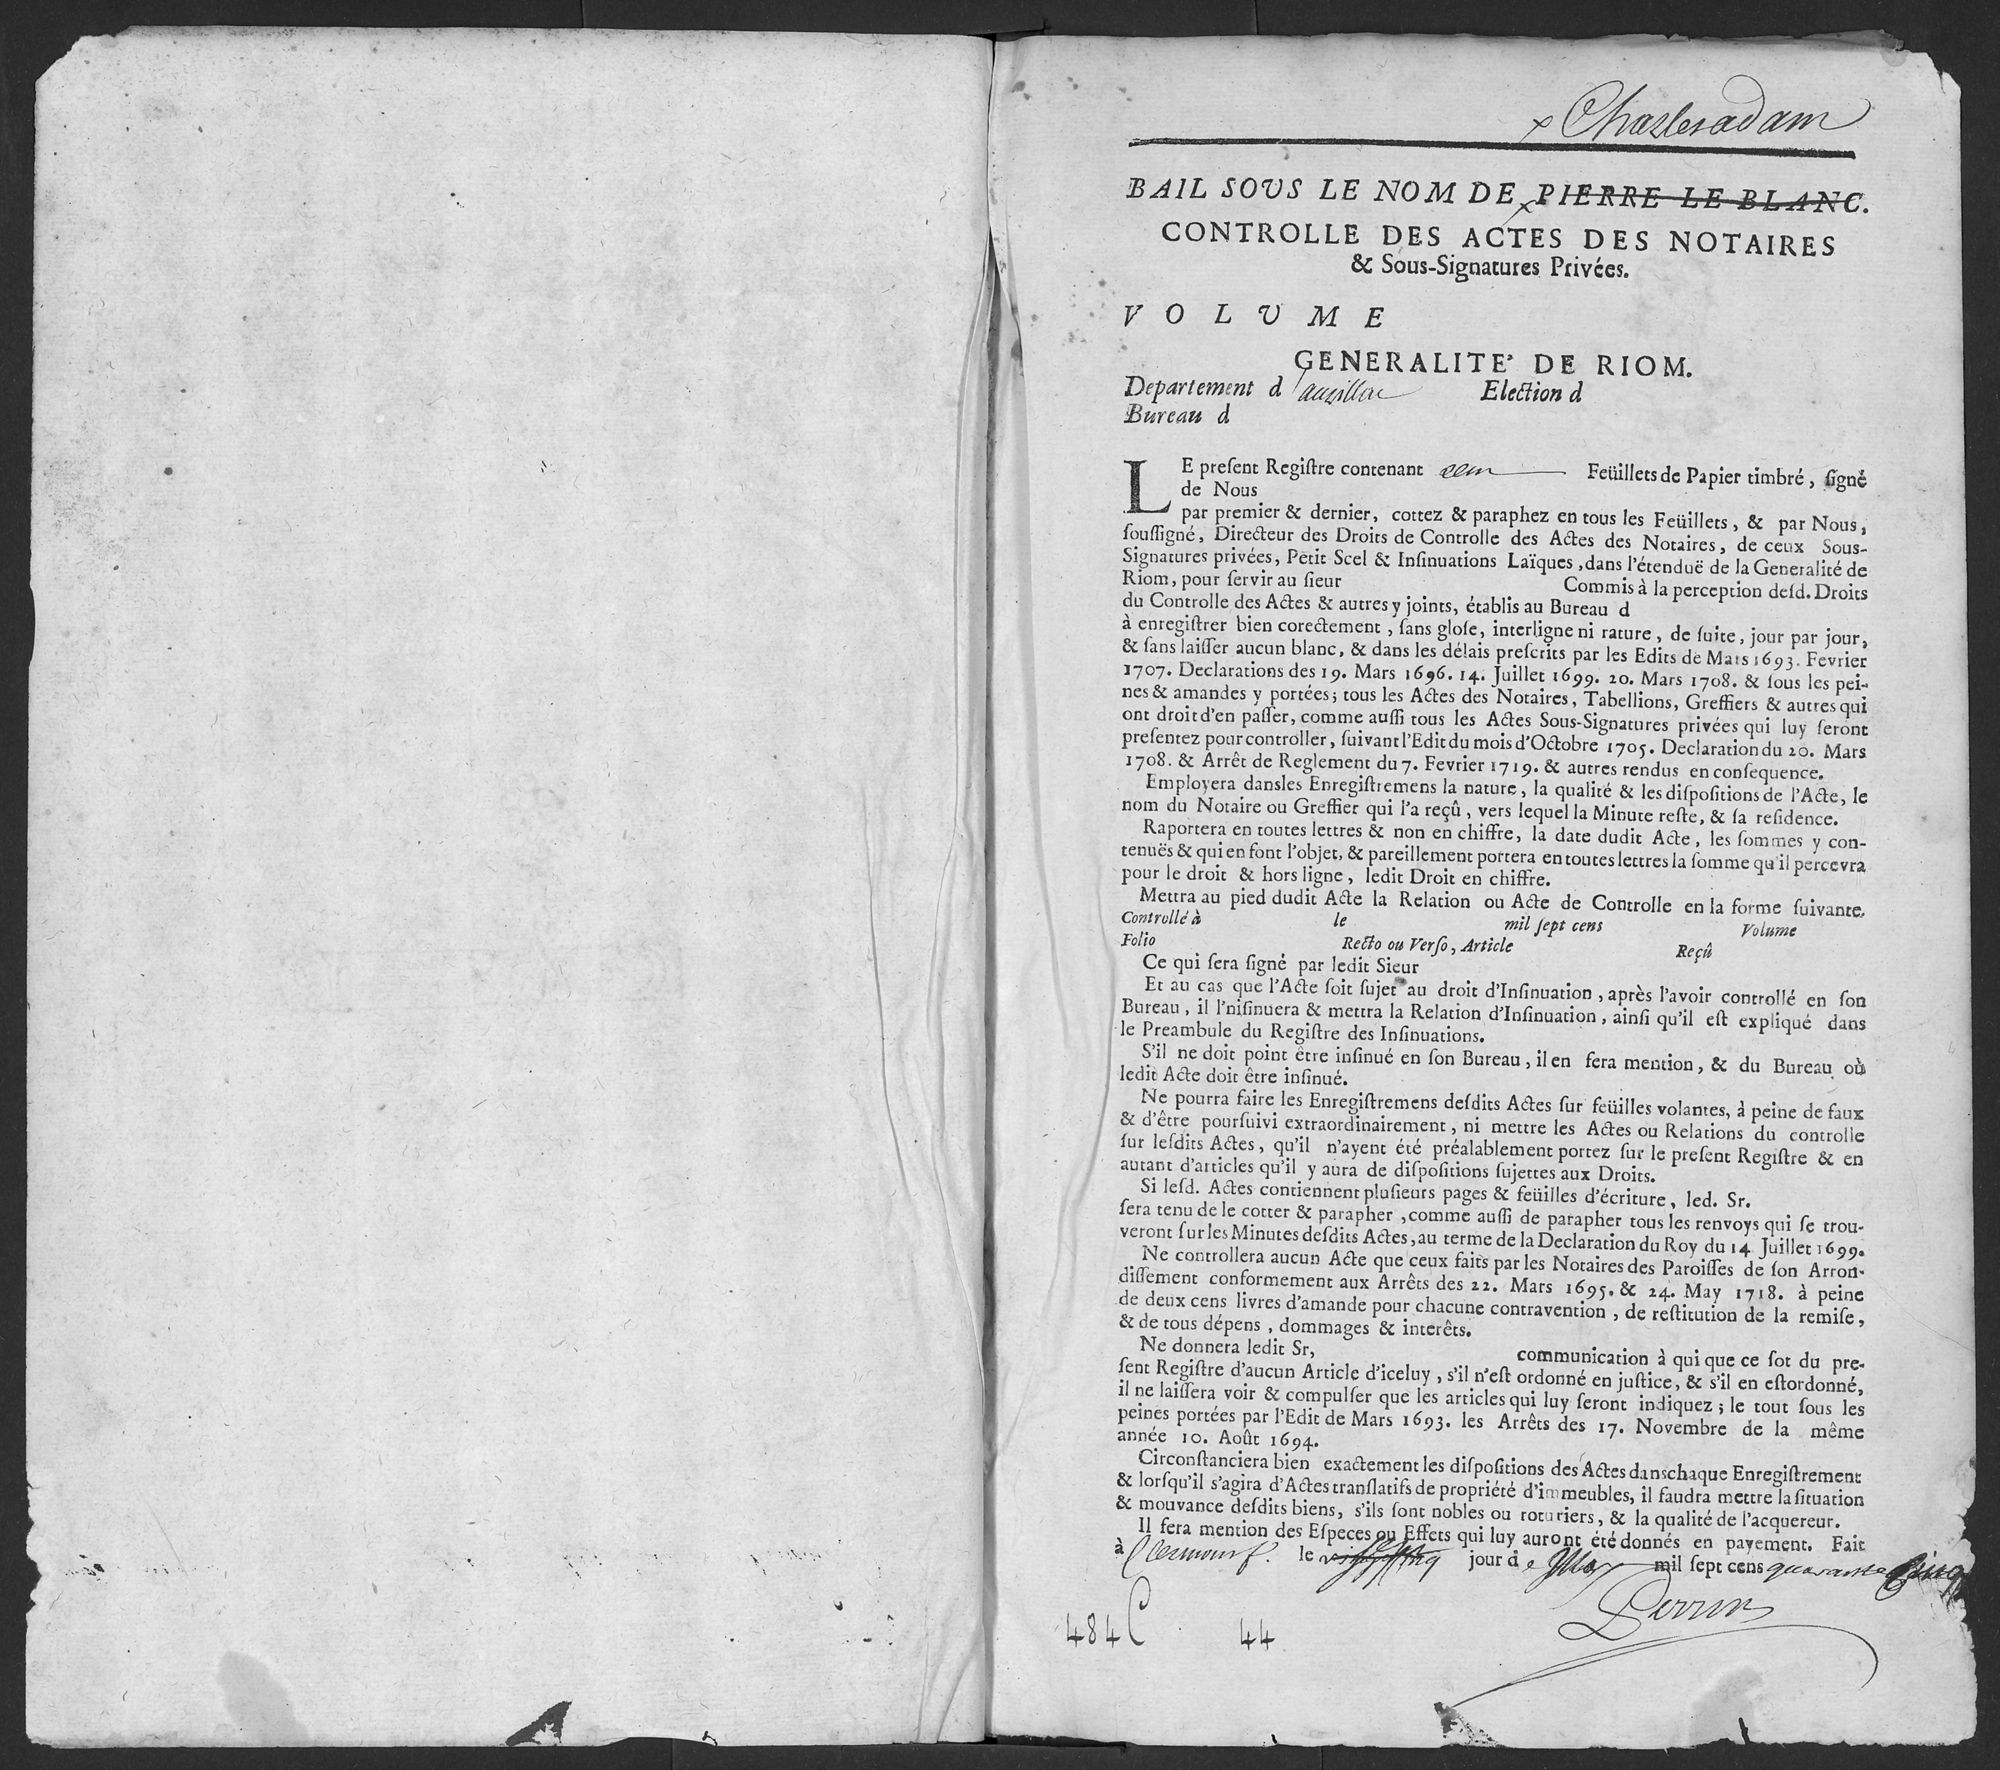 × Charles adam
BAIL SOUS LE NOM DE × PIERRE LE BLANC.
CONTROLLE DES ACTES DES NOTAIRES
& Sous-Signatures Privées.
VOLUME
GENERALITE' DE RIOM.
Departement d'aurillac Election d
Bureau d
LE preſent Regiſtre contenant cent Feüillets de Papier timbré, ſigné
de Nous
par premier & dernier, cottez & paraphez en tous les Feüillets, & par Nous,
ſouſſigné, Directeur des Droits de Controlle des Actes des Notaires, de ceux Sous-
Signatures privées, Petit Scel & Inſinuations Laïques, dans l'étenduë de la Generalité de
Riom, pour ſervir au ſieur Commis à la perception deſd. Droits
du Controlle des Actes & autres y joints, établis au Bureau d
à enregiſtrer bien corectement, ſans gloſe, interligne ni rature, de ſuite, jour par jour,
& ſans laiſſer aucun blanc, & dans les délais preſcrits par les Edits de Mars 1693. Fevrier
1707. Declarations des 19. Mars 1696. 14. Juillet 1699. 20. Mars 1708. & ſous les pei-
nes & amandes y portées; tous les Actes des Notaires, Tabellions, Greffiers & autres qui
ont droit d'en paſſer, comme auſſi tous les Actes Sous-Signatures privées qui luy ſeront
preſentez pour controller, ſuivant l'Edit du mois d'Octobre 1705. Declaration du 20. Mars
1708. & Arrêt de Reglement du 7. Fevrier 1719. & autres rendus en conſequence.
Employera dansles Enregiſtremens la nature, la qualité & les diſpoſitions de l'Acte, le
nom du Notaire ou Greffier qui l'a reçû, vers lequel la Minute reſte, & ſa reſidence.
Raportera en toutes lettres & non en chiffre, la date dudit Acte, les ſommes y con-
tenuës & qui en font l'objet, & pareillement portera en toutes lettres la ſomme qu'il percevra
pour le droit & hors ligne, ledit Droit en chiffre.
Mettra au pied dudit Acte la Relation ou Acte de Controlle en la forme ſuivante.
Controllé à le mil ſept cens Volume
Folio Recto ou Verſo, Article Reçû
Ce qui ſera ſigné par ledit Sieur
Et au cas que l'Acte ſoit ſujet au droit d'Inſinuation, après l'avoir controllé en ſon
Bureau, il l'niſinuera & mettra la Relation d'Inſinuation, ainſi qu'il eſt expliqué dans
le Preambule du Regiſtre des Inſinuations.
S'il ne doit point être inſinué en ſon Bureau, il en fera mention, & du Bureau où
ledit Acte doit être inſinué.
Ne pourra faire les Enregiſtremens deſdits Actes ſur feüilles volantes, à peine de faux
& d'être pourſuivi extraordinairement, ni mettre les Actes ou Relations du controlle
ſur leſdits Actes, qu'il n'ayent été préalablement portez ſur le preſent Regiſtre & en
autant d'articles qu'il y aura de diſpoſitions ſujettes aux Droits.
Si leſd. Actes contiennent pluſieurs pages & feüilles d'écriture, led. Sr.
ſera tenu de le cotter & parapher, comme auſſi de parapher tous les renvoys qui ſe trou-
veront ſur les Minutes deſdits Actes, au terme de la Declaration du Roy du 14 Juillet 1699.
Ne controllera aucun Acte que ceux faits par les Notaires des Paroiſſes de ſon Arron-
diſſement conformement aux Arrêts des 22. Mars 1695. & 24. May 1718. à peine
de deux cens livres d'amande pour chacune contravention, de reſtitution de la remiſe,
& de tous dépens, dommages & interêts.
Ne donnera ledit Sr, communication à qui que ce ſot du pre-
ſent Regiſtre d'aucun Article d'iceluy, s'il n'eſt ordonné en juſtice, & s'il en eſtordonné,
il ne laiſſera voir & compulſer que les articles qui luy ſeront indiquez; le tout ſous les
peines portées par l'Edit de Mars 1693. les Arrêts des 17. Novembre de la même
année 10. Août 1694.
Circonſtanciera bien exactement les diſpoſitions des Actes danschaque Enregiſtrement
& lorſqu'il s'agira d'Actes tranſlatifs de propriété d'immeubles, il faudra mettre la ſituation
& mouvance deſdits biens, s'ils ſont nobles ou roturiers, & la qualité de l'acquereur.
Il fera mention des Eſpeces ou Effets qui luy auront été donnés en payement. Fait
à Clermont le jour de May mil ſept cens quarante Cinq
Perrin
484 C 44